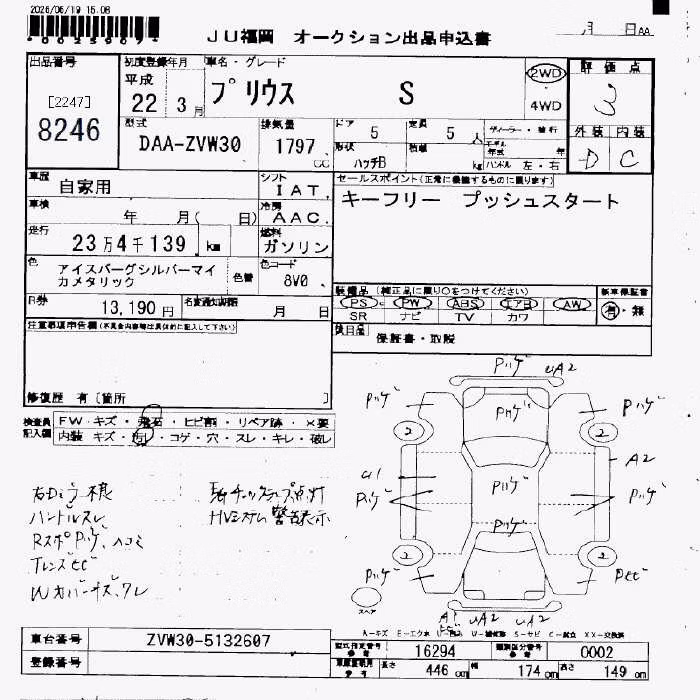 2026/06/19 15.08
*0025907*
JU福岡 オークション出品申込書
月 日AA
出品番号
[2247]
8246
初度登録年月
平成
22 3月
車名・グレード
プリウス S
2WD
4WD
評価点
3
外装 内装
D C
型式
DAA-ZVW30
排気量
1797 CC
ドア 5
定員 5 人
形状 ハッチB
積載 kg
ディーラー・並行
モデル年式 年
ハンドル 左・右
車歴
自家用
シフト
IAT.
車検
年 月( 日)
冷房
AAC.
走行
23万4千139 km
燃料
ガソリン
色
アイスバーグシルバーマイカメタリック
色替
色コード
8V0
R券
13,190円
名変通知期限
月 日
セールスポイント(正常に機能するものに限ります)
キーフリー プッシュスタート
装備品(純正品に限り○をつけてください)
PS PW ABS エアB AW
SR ナビ TV カワ
新車保証書
有・無
後日品
保証書・取説
注意事項申告欄(不具合内容等は具体的に記入して下さい)
修復歴 有[箇所 ]
検査員記入欄
FW キズ・飛石・ヒビ割・リペア跡・×要
内装 キズ・汚レ・コゲ・穴・スレ・キレ・破レ
ハンドルスレ
HVシステム警告表示
Pハゲ UA2
Pハゲ
Pハゲ
Pハゲ
2
2
U1
A2
Pハゲ
Pハゲ
Pハゲ
Pハゲ
2
2
Pハゲ
スペア
A1 UA2 UA2
A-キズ E-エクボ U-凹み W-補修跡 S-サビ C-腐食 XX-交換済
車台番号
ZVW30-5132607
登録番号
型式指定番号
参考
16294
類別区分番号
参考
0002
車庫証明用
参考
長さ 446 cm
幅 174 cm
高さ 149 cm